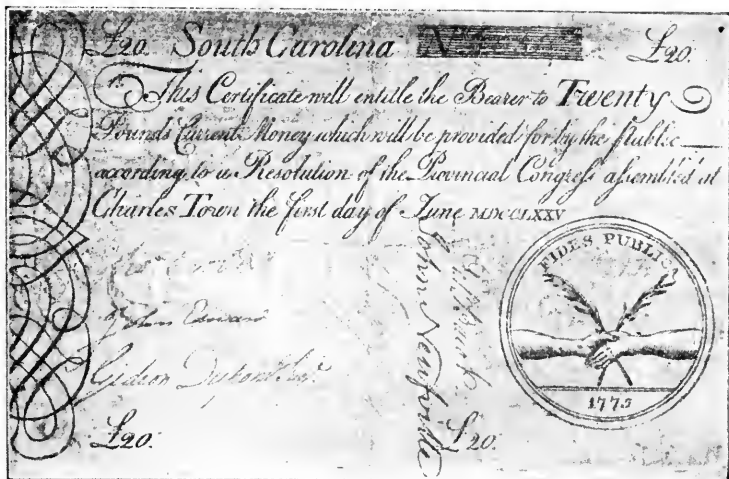 £20. South Carolina N £20.
This Certificate will entitle the Bearer to Twenty
Pounds Current Money which will be provided for by the Public
according to a Resolution of the Provincial Congress assembled at
Charles Town the first day of June MDCCLXXV
FIDES PUBLICA
John
Gideon Dupont Junr.
John Neufville
1775
£20. £20.